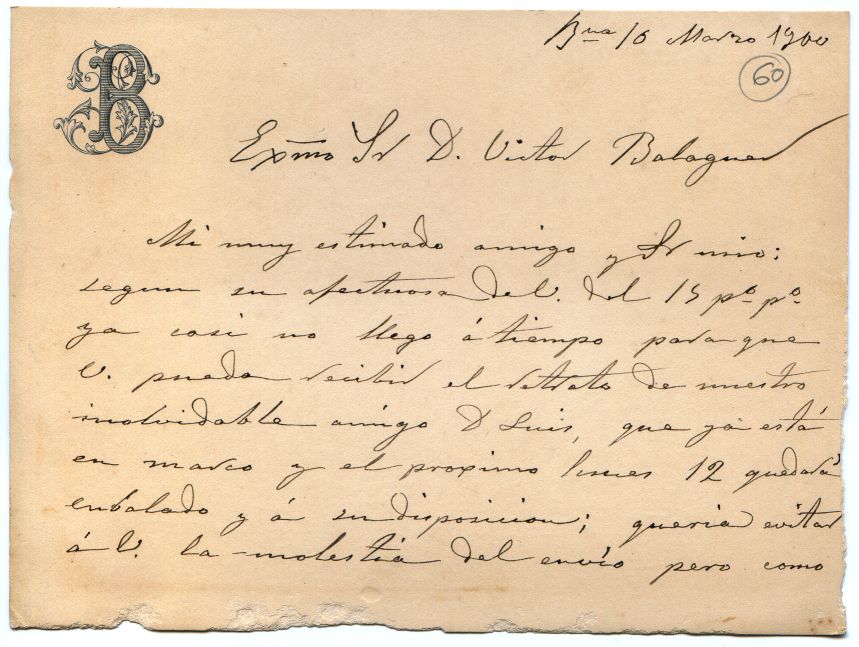 B
Bna 10 Marzo 1900
60
Exmo Sr D. Victor Balaguer
Mi muy estimado amigo y Sr mio:
segun su afectuosa de V. del 15 po. po.
ya casi no llego á tiempo para que
V. pueda recibir el retrato de nuestro
inolvidable amigo D Luis, que ya está
en marco y el proximo lunes 12 quedará
enbalado y á su disposicion; queria evitar
á V. la molestia del envio pero como